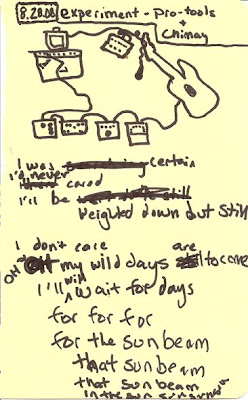 8.20.08 experiment - pro-tools
+
Chimay
I was certain
I'd never
cared
I'll be
Weighted down but still
I don't care are
OH my wild days to come
wild
I'll wait for days
for for for
for the sun beam
that sun beam
that sun beam
in the sun